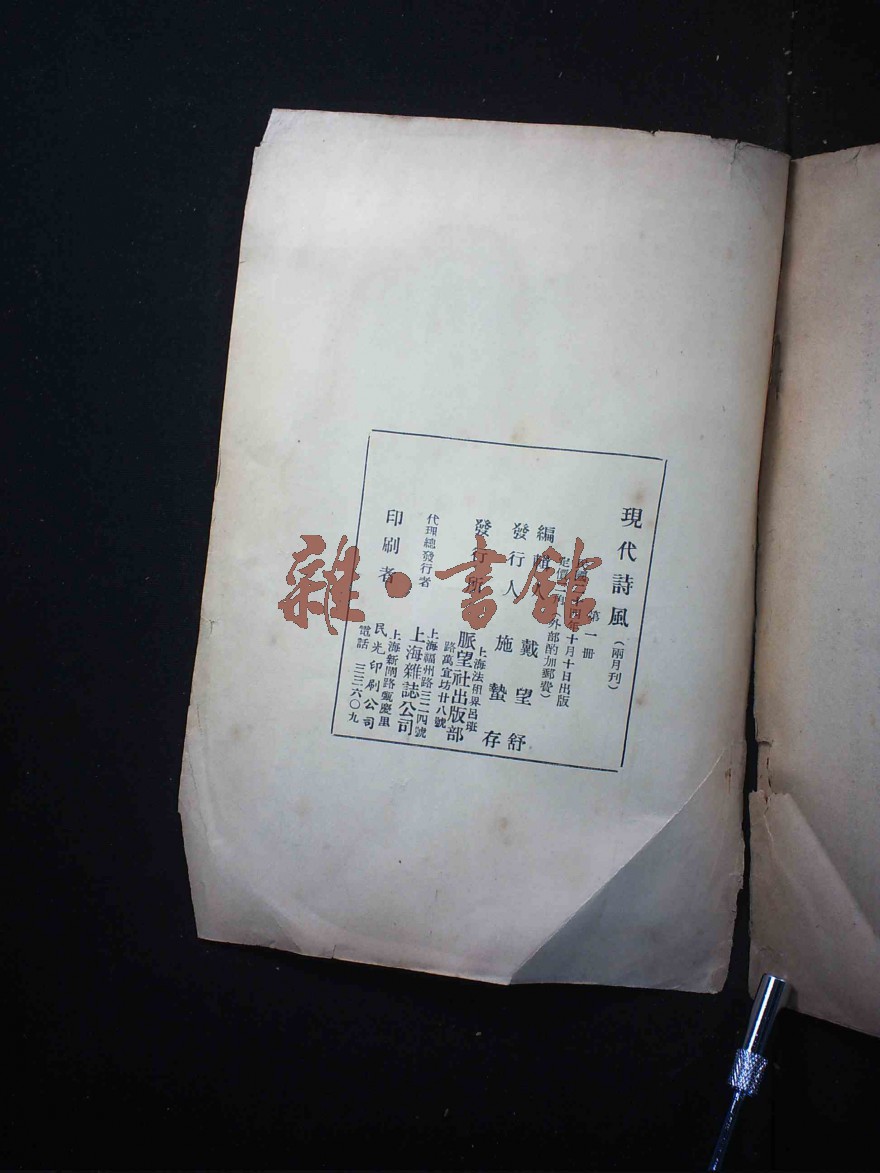 現代詩風(兩月刊)
第一冊
民國二十四年十月十日出版
定價二角(外部酌加郵費)
編輯人 戴望舒
發行人 施蟄存
發行所
上海法租界呂班
路萬宜坊廿八號
脈望社出版部
代理總發行者
上海福州路三二四號
上海雜誌公司
印刷者
上海新閘路甄慶里
民光印刷公司
電話 三三六〇九
雜·書館